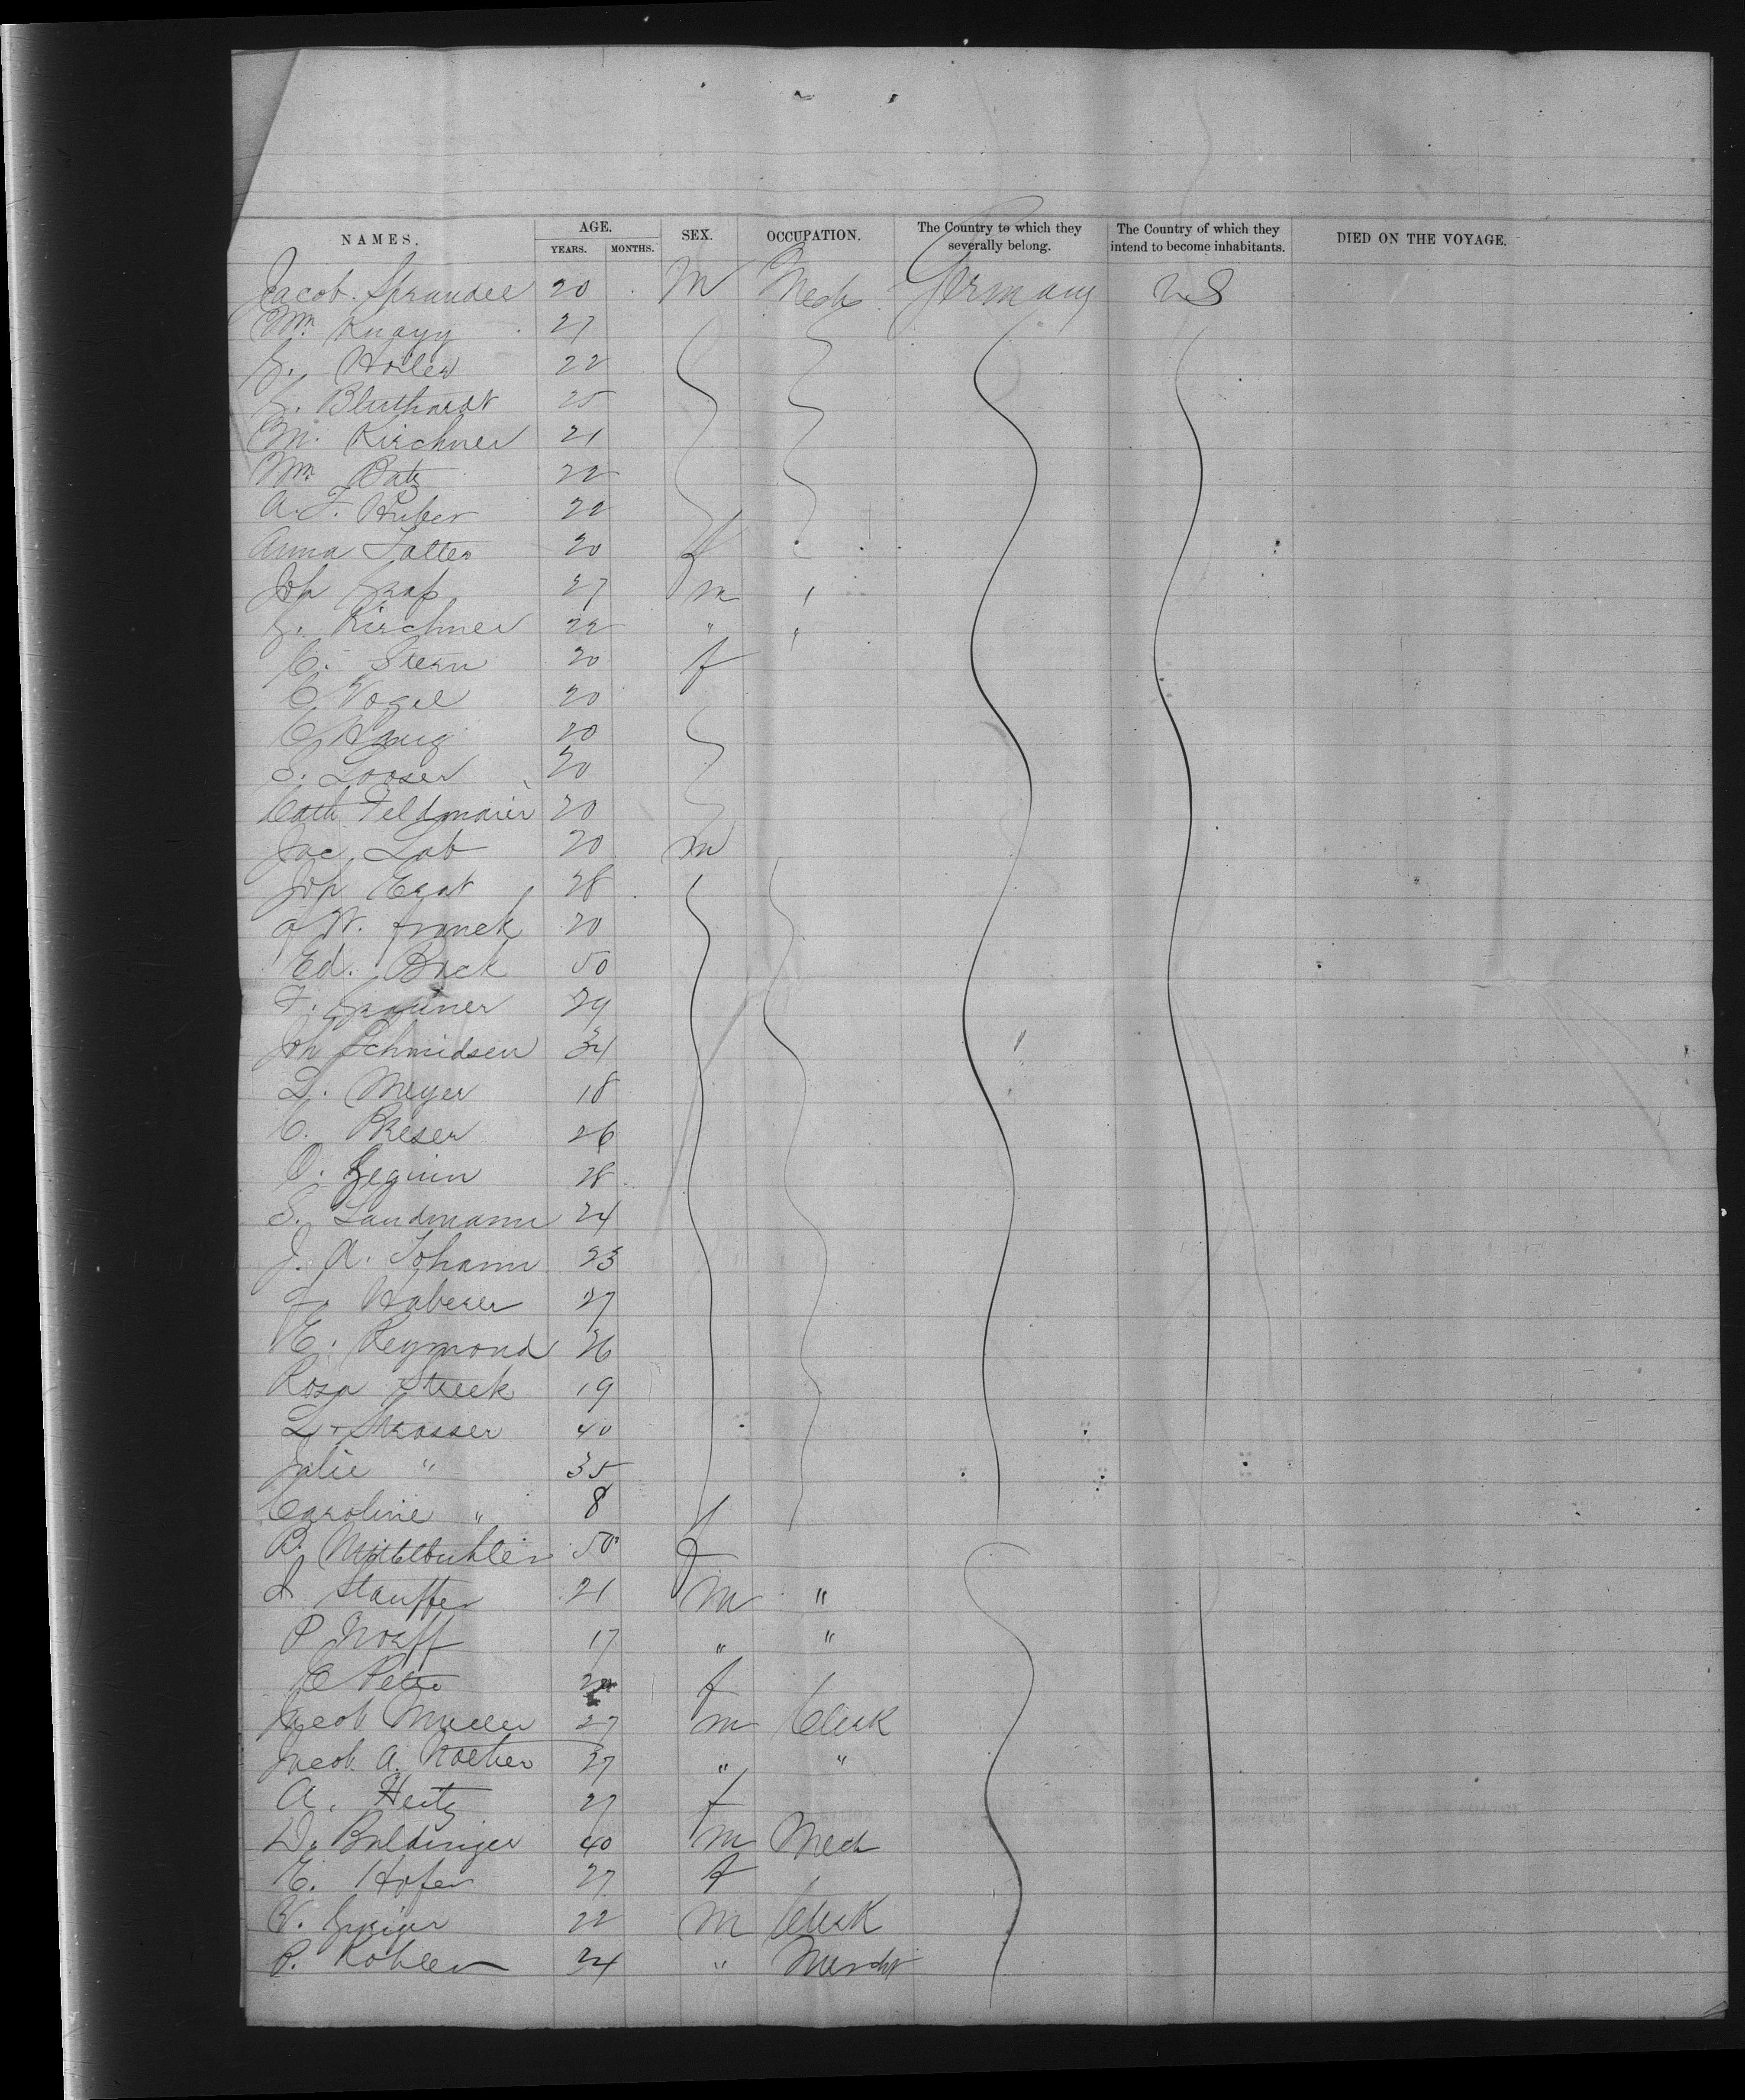 NAMES. AGE. YEARS. MONTHS. SEX. OCCUPATION. The Country to which they severally belong. The Country of which they intend to become inhabitants. DIED ON THE VOYAGE.
Jacob 20 M Mech Germany US
Wm Knapp 27
22
G. Bluthardt 25
M. Kirchner 21
Wm Batz 22
A. F. Huber 22
Anna 20 f
Joh 27 m
G. Kirchner 22 "
C. Stern 20 f
C Vogel 20
C Haug 20
S. Looser 20
Cath Feldmaier 20
Jac Lab 20 m
Joh Egat 28
W. franck 20
Ed. Back 50
F. 29
Joh Schmidsen 34
L. Meyer 18
C. Preser 26
O. 28
S. Landmann 24
J. A. Johann 23
Haberer 27
E. Reymond 26
Rosa Streek 19
L. Strasser 40
Julie " 35
Caroline " 8
R. Mittelbuhler 50 f
Stauffer 21 m "
P 17 " "
C Petro f
Jacob Muller 27 m Clerk
Jacob A. 27 " "
A. Heitz 27 f
D. Baldinger 40 m Mech
E. Hofer 27 f
22 m Clerk
P. Kohler 24 " Mercht